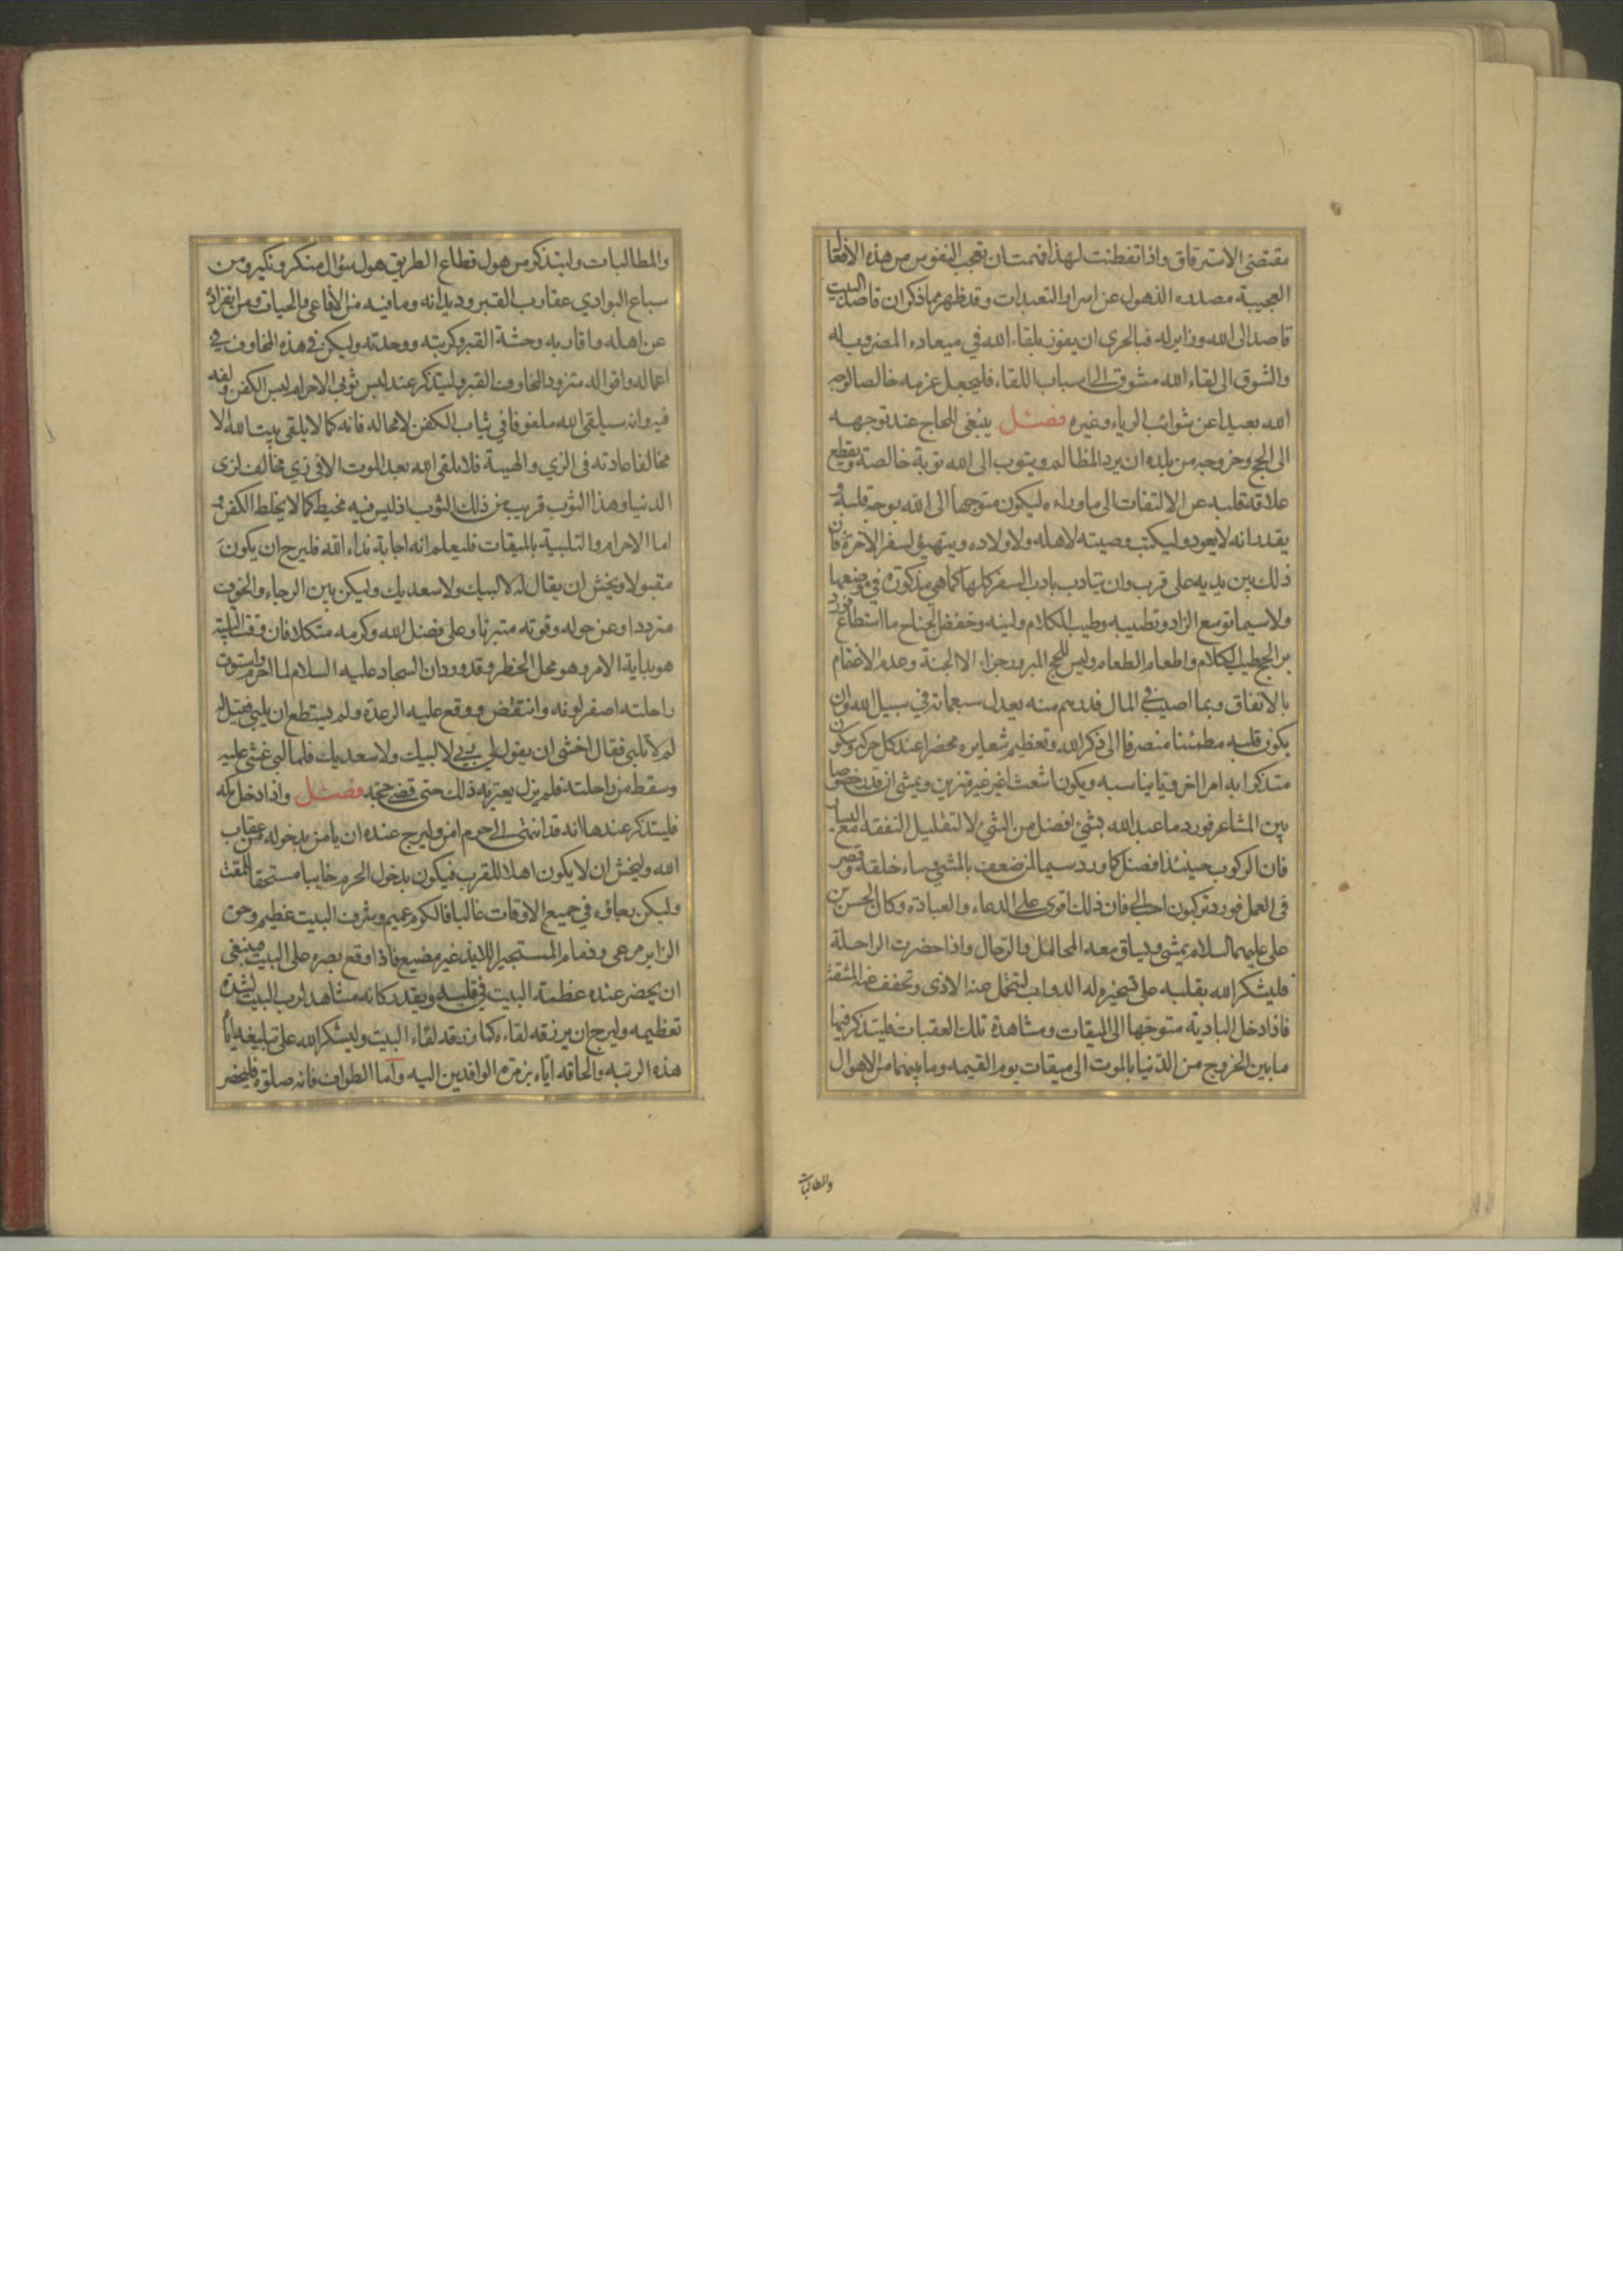 مقتضى الاسترقاق واذا تفطنت لهذا فهمت ان تعجب النفوس من هذه الافعال
العجيبة مصدره الذهول عن اسرار التعبدات وقد ظهر مما ذكر ان قاصد البيت
قاصد الى الله وزاير له فبالحرى ان يفوز بلقاء الله في ميعاده المضروب له
والشوق الى لقاء الله مشوق الى اسباب اللقاء فليجعل عزمه خالصا لوجه
الله بعيدا عن شوائب الرياء وغيره فصل ينبغى للحاج عند توجهه
الى الحج وخروجه من بلده ان يرد المظالم ويتوب الى الله توبة خالصة ويقطع
علاقة قلبه عن الالتفات الى ماوراءه ليكون متوجها الى الله بوجه قلبه و
يقدر انه لا يعود وليكتب وصيته لاهله ولاولاده ويتهيؤ لسفر الاخرة فان
ذلك بين يديه على قرب وان يتادب باداب السفر كلها كما هي مذكورة في موضعها
ولا سيما توسع الزاد وتطييبه وطيب الكلام ولينه وخفض الجناح ما استطاع فورد
بر الحج طيب الكلام واطعام الطعام وليس للحج المبرور جزاء الا الجنة وعدم الاغتمام
بالانفاق وبما اصيب في المال فدرهم منه يعدل سبعمائة في سبيل الله وان
يكون قلبه مطمئنا منصرفا الى ذكر الله وتعظيم شعايره محضرا عند كل حركة وسكون
متذكرا به امرا اخرويا يناسبه ويكون اشعث اغبر غير متزين ويمشى ان قدر خصوصا
بين المشاعر فورد ما عبد الله بشئ افضل من المشي لا لتقليل النفقة مع اليسار
فان الركوب حينئذ افضل كما ورد سيما لمن ضعف بالمشي وساء خلقه وقصر
فى العمل فورد تركبون احب الي فان ذلك اقوى على الدعاء والعبادة وكان الحسن بن
على عليهما السلام يمشى ويساق معه المحامل والرحال واذا حضرت الراحلة
فليشكر الله بقلبه على تسخيره له الدواب لتحمل عنه الاذى وتخفف عنه المشقة
فاذا دخل البادية متوجها الى الميقات ومشاهدة تلك العقبات فليتذكر فيها
ما بين الخروج من الدنيا بالموت الى ميقات يوم القيمه وما بينهما من الاهوال
والمطالبات
والمطالبات وليتذكر من هول قطاع الطريق هول سؤال منكر ونكير ومن
سباع البوادي عقارب القبر وديدانه وما فيه من الافاعى والحيات ومن انفراده
عن اهله واقاربه وحشة القبر وكربته ووحدته وليكن في هذه المخاوف في
اعماله واقواله متزودا لمخاوف القبر وليتذكر عند لبس ثوبى الاحرام لبس الكفن ولفه
فيه وانه سيلقى الله ملفوفا في ثياب الكفن لا محاله فانه كما لا يلقى بيت الله الا
مخالفا عادته فى الزي والهيئة فلا يلقى الله بعد الموت الا في زي مخالف لزى
الدنيا وهذا الثوب قريب من ذلك الثوب اذ ليس فيه مخيط كما لا يخلط الكفن و
اما الاحرام والتلبية بالميقات فليعلم انه اجابة نداء الله فليرج ان يكون
مقبولا ويخش ان يقال له لا لبيك ولا سعديك وليكن بين الرجاء والخوف
مترددا وعن حوله وقوته متبرئا وعلى فضل الله وكرمه متكلا فان وقت التلبية
هو بداية الامر وهو محل الخطر وقد ورد ان السجاد عليه السلام لما احرم واستوت
راحلته اصفر لونه وانتفض ووقع عليه الرعدة ولم يستطع ان يلبي فقيل له
لم لا تلبى فقال اخشى ان يقول لي ربي لا لبيك ولا سعديك فلما لبى غشى عليه
وسقط من راحلته فلم يزل يعتريه ذلك حتى قضى حجه فصل واذا دخل مكه
فليتذكر عندها انه قد انتهى الى حرم امن وليرج عنده ان يامن بدخوله من عقاب
الله وليخش ان لا يكون اهلا للقرب فيكون بدخول الحرم خايبا مستحقا للمقت
وليكن رجاؤه في جميع الاوقات غالبا فالكرم عميم وشرف البيت عظيم وحق
الزاير مرعى وذمام المستجير اللايذ غير مضيع فاذا وقع بصره على البيت فينبغى
ان يحضر عنده عظمة البيت في قلبه ويقدر كانه مشاهد لرب البيت لشدة
تعظيمه وليرج ان يرزقه لقاءه كما رزقه لقاء البيت وليشكر الله على تبليغه اياه
هذه الرتبه والحاقه اياه بزمرة الوافدين اليه واما الطواف فانه صلوة فليحضر